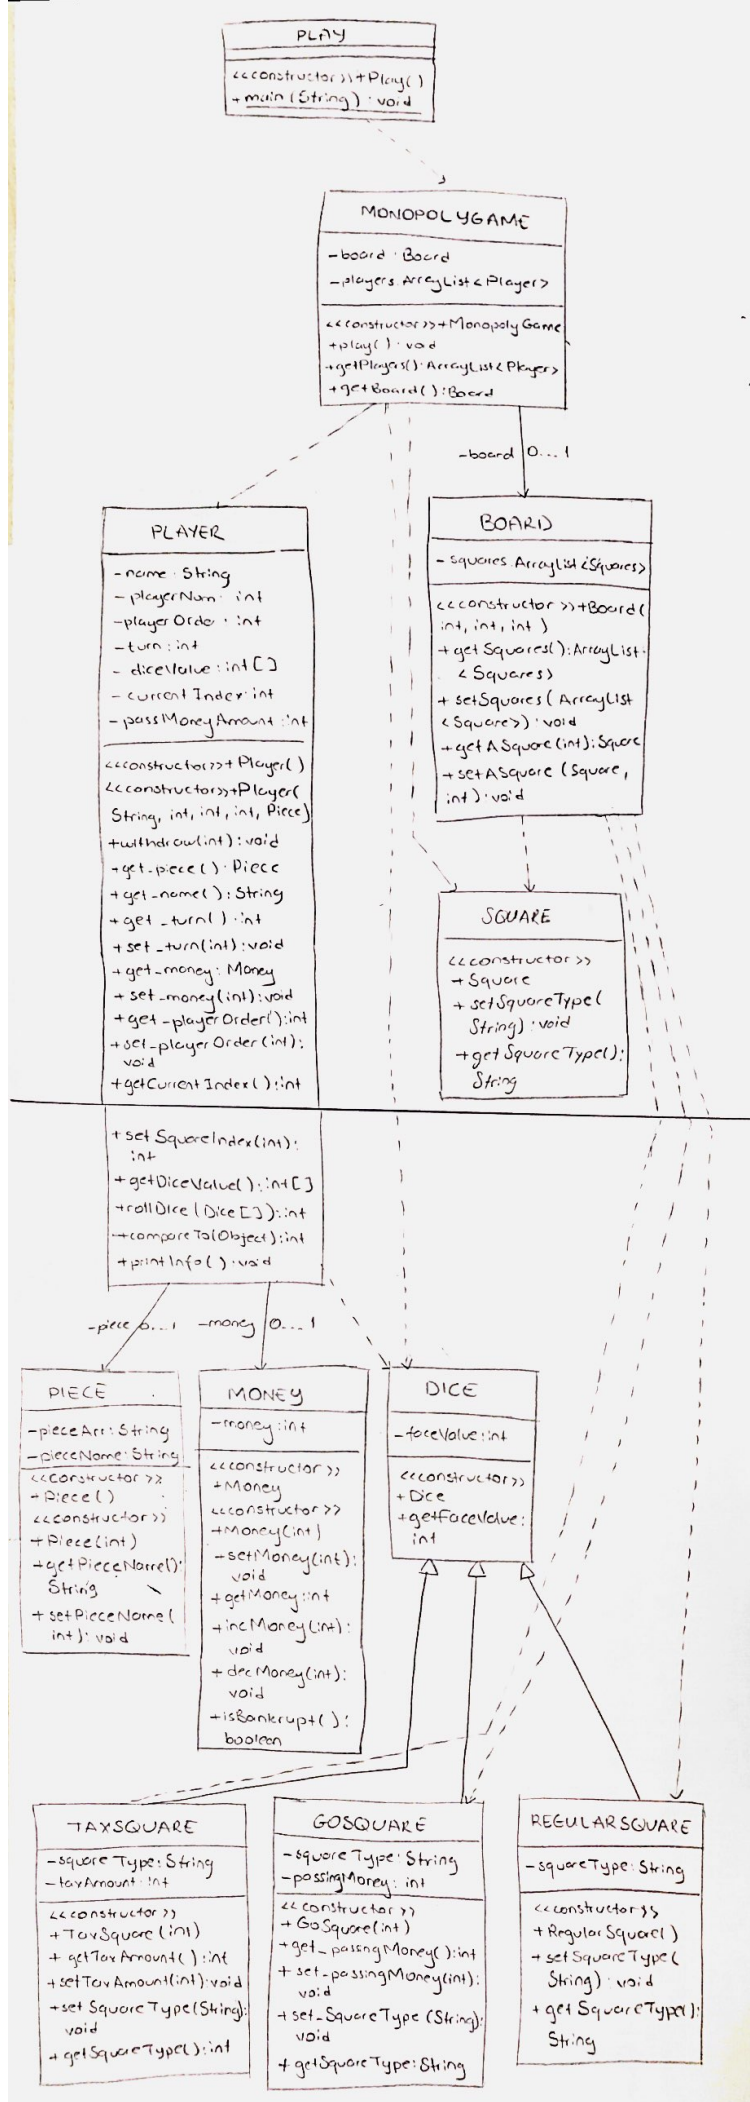 PLAY
<<constructor>>+Play()
+main(String): void
MONOPOLYGAME
-board: Board
-players: ArrayList<Player>
<<constructor>>+MonopolyGame
+play(): void
+getPlayers(): ArrayList<Player>
+getBoard(): Board
-board 0...1
PLAYER
-name: String
-playerNum: int
-playerOrder: int
-turn: int
-diceValue: int[]
-currentIndex: int
-passMoneyAmount: int
<<constructor>>+Player()
<<constructor>>+Player(
String, int, int, int, Piece)
+withdraw(int): void
+get_piece(): Piece
+get_name(): String
+get_turn(): int
+set_turn(int): void
+get_money: Money
+set_money(int): void
+get_playerOrder(): int
+set_playerOrder(int):
void
+getCurrentIndex(): int
+setSquareIndex(int):
int
+getDiceValue(): int[]
+rollDice(Dice[]): int
+compareTo(Object): int
+printInfo(): void
BOARD
-squares: ArrayList<Squares>
<<constructor>>+Board(
int, int, int)
+getSquares(): ArrayList
<Squares>
+setSquares(ArrayList
<Square>): void
+getASquare(int): Square
+setASquare(Square,
int): void
SQUARE
<<constructor>>
+Square
+setSquareType(
String): void
+getSquareType():
String
-piece 0...1
-money 0...1
PIECE
-pieceArr: String
-pieceName: String
<<constructor>>
+Piece()
<<constructor>>
+Piece(int)
+getPieceName():
String
+setPieceName(
int): void
MONEY
-money: int
<<constructor>>
+Money
<<constructor>>
+Money(int)
+setMoney(int):
void
+getMoney: int
+incMoney(int):
void
+decMoney(int):
void
+isBankrupt():
boolean
DICE
-faceValue: int
<<constructor>>
+Dice
+getFaceValue:
int
TAXSQUARE
-squareType: String
-taxAmount: int
<<constructor>>
+TaxSquare(int)
+getTaxAmount(): int
+setTaxAmount(int): void
+setSquareType(String):
void
+getSquareType(): int
GOSQUARE
-squareType: String
-passingMoney: int
<<constructor>>
+GoSquare(int)
+get_passngMoney(): int
+set-passingMoney(int):
void
+set_SquareType(String):
void
+getSquareType: String
REGULARSQUARE
-squareType: String
<<constructor>>
+RegularSquare()
+setSquareType(
String): void
+getSquareType():
String